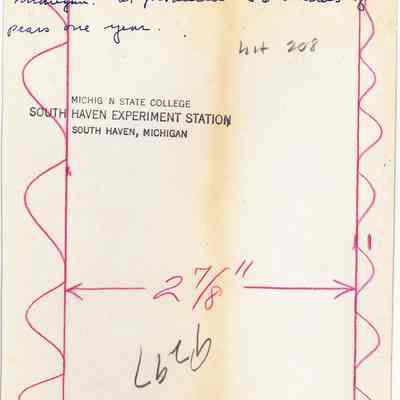 pears one year.
LH 208
MICHIG N STATE COLLEGE
SOUTH HAVEN EXPERIMENT STATION
SOUTH HAVEN, MICHIGAN
2 7/8"